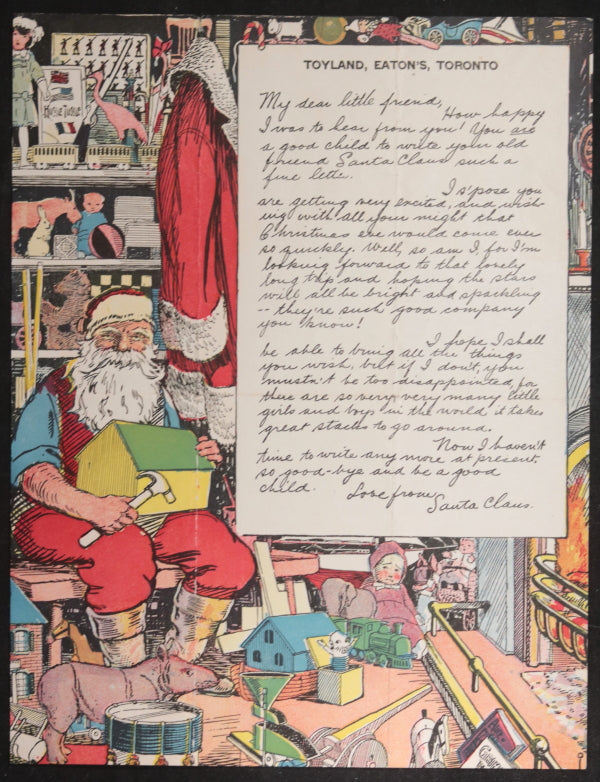 TOYLAND, EATON'S, TORONTO
My dear little friend,
How happy
I was to hear from you! You are
a good child to write your old
friend Santa Claus such a
fine letter.
I s'pose you
are getting very excited, and wish-
ing with all your might that
Christmas eve would come ever
so quickly. Well, so am I, for I'm
looking forward to that lovely
long trip and hoping the stars
will all be bright and sparkling
-- they're such good company
you know!
I hope I shall
be able to bring all the things
you wish, but if I don't, you
mustn't be too disappointed, for
there are so very, very many little
girls and boys in the world it takes
great stacks to go around.
Now I haven't
time to write any more at present,
so good-bye and be a good
child.
Love from
Santa Claus.